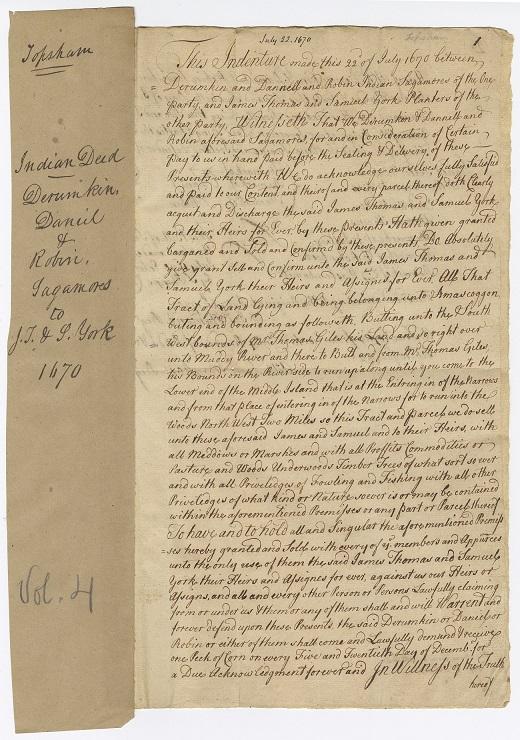 Topsham
Indian Deed
Derumkin,
Daniel
&
Robin.
Sagamores
to
J.T. & S. York
1670
Vol. 4
July 22. 1670
Topsham
1
This Indenture made this 22 of July 1670 between
Derumkin and Dannell and Robin Indian Sagamores of the One
Party, and James Thomas and Samuel York Planters of the
other party, Witnesseth That We Derumkin & Dannell and
Robin aforesaid Sagamores, for and in Consideration of Certain
Pay to us in hand Paid before the Sealing & Delivery of these
Presents wherewith We do acknowledge ourselves fully Satisfied
and Paid to our Content and thereof and every parcel thereof doth Clearly
acquit and Discharge the said James Thomas and Samuel York
and their Heirs for Ever, by these Presents Hath given granted
bargained and Sold and Confirmed by these presents Do Absolutely
give grant Sell and Confirm unto the said James Thomas and
Samuel York their Heirs and Assignes for Ever All That
Tract of Land Lying and being belonging unto
buting and bounding as followeth Butting unto the South
West bounds of Mr. Thomas Giles his Land and so right over
unto Muddy River and there to Butt and from Mr. Thomas Giles
his Bounds in the River side to run up along until you come to the
Lower end of the Middle Island that is at the Entring in of the Narrows
and from that place of entering in of the Narrows for to run into the
Woods North West Two Miles so this Tract and Parcel we do sell
unto these aforesaid James and Samuel and to their Heirs with
all Meddows or Marshes and with all Proffits Commodities or
Pasture and Woods Underwoods Timber Trees of what sort so ever
and with all Priviledges of Fowling and Fishing with all other
Priviledges of what kind or Nature soever is or may be contained
within the aforementioned Premisses or any part or Parcel thereof
To have and to hold all and Singular the aforementioned Premis=
=ses hereby granted and Sold with every of yr. members and Appurces
unto the only use of them the said James Thomas and Samuel
York their Heirs and Assignes for ever, against us our Heirs or
Assigns, and all and every other Person or Persons Lawfully claiming
from or under us & them or any of them shall and will Warrent and
forever defend upon these Presents the said Derumkin or Daniel or
Robin or either of them shall come and Lawfully demand & receive
one Peck of Corn on every Five and Twentieth Day of Decemb. for
a Due Acknowledgment forever and In Wittness of the Truth
hereof